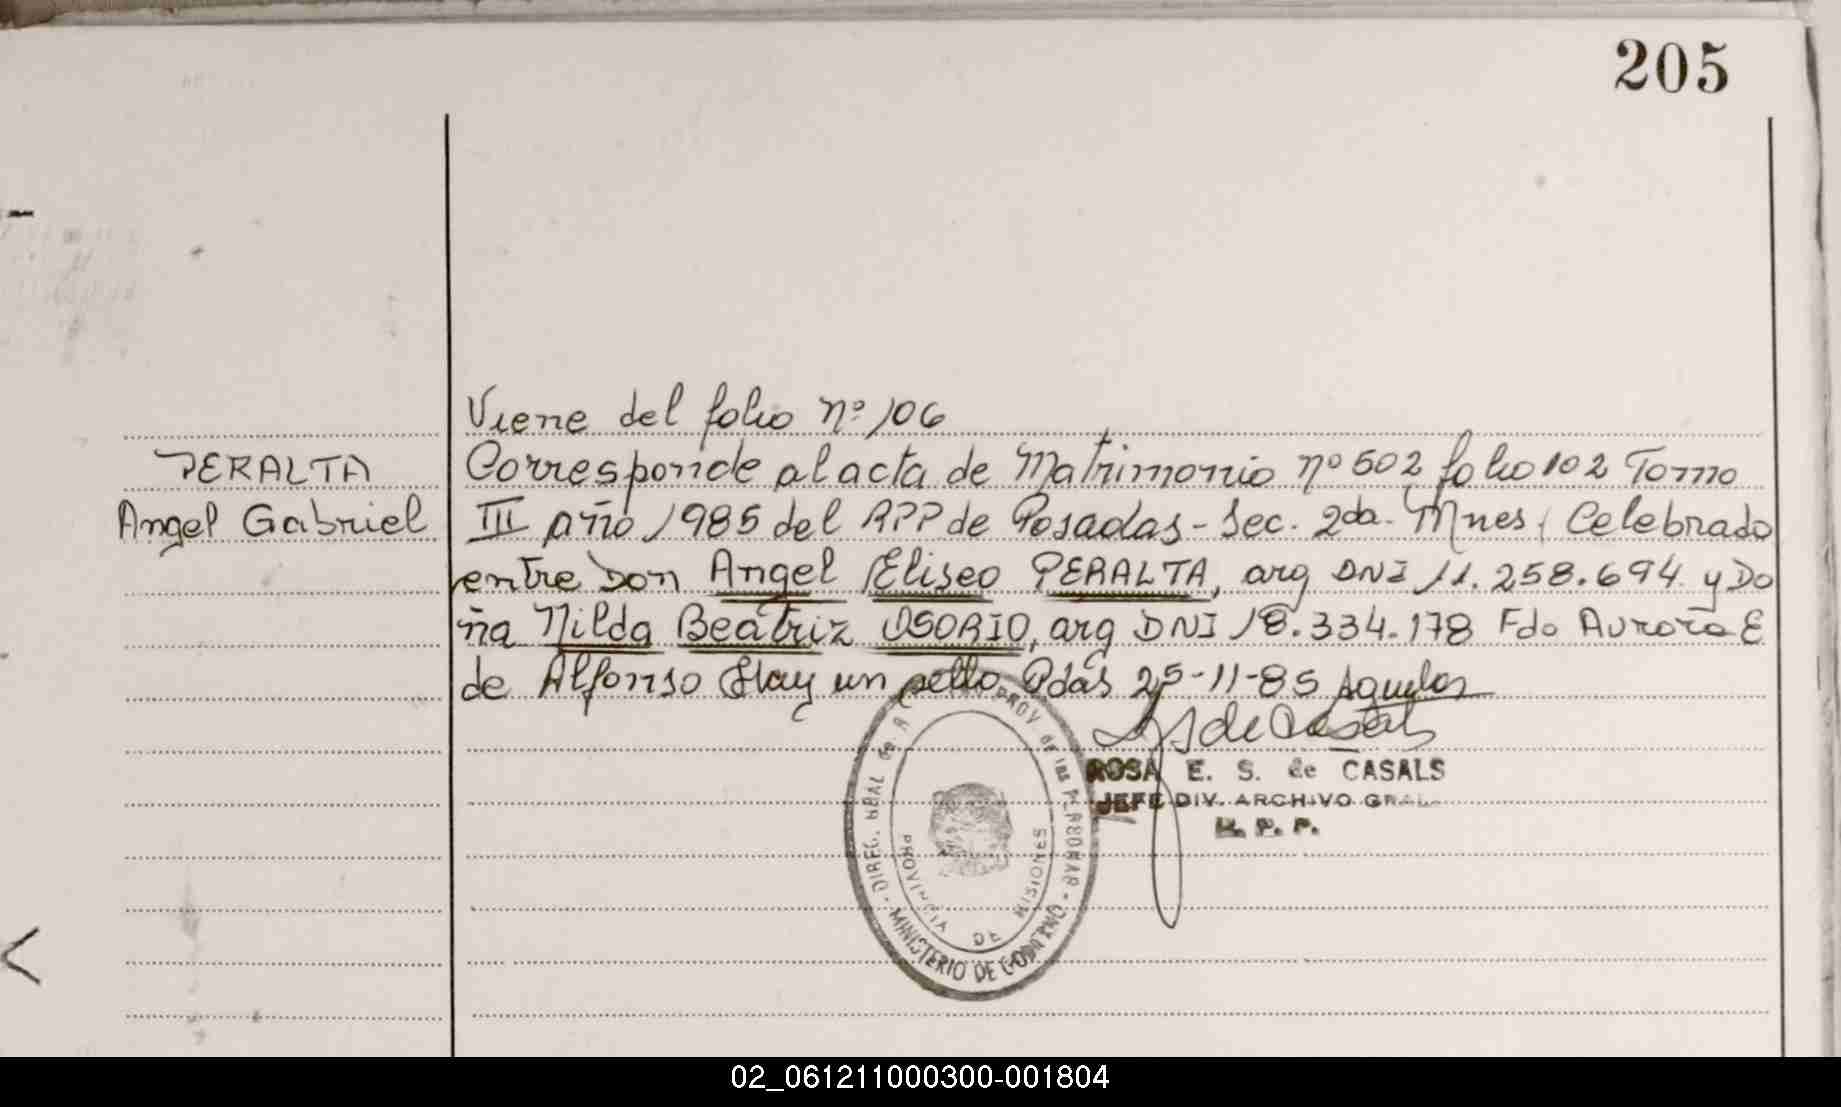 205
Viene del folio nº 106
PERALTA
Angel Gabriel
Corresponde al acta de Matrimonio nº 502 folio 102 Tomo
III año 1985 del RPP de Posadas - Sec. 2da. Mnes, Celebrado
entre Don Angel Eliseo PERALTA, arg DNI 11.258.694 y Do
ña Nilda Beatriz OSORIO, arg DNI 18.334.178 Fdo Aurora E
de Alfonso Hay un sello. Pdas 25-11-85
ROSA E. S. de CASALS
JEFE DIV. ARCHIVO GRAL.
R. P. P.
DIREC. GRAL de PROV de las PERSONAS
MINISTERIO DE GOBIERNO
PROVINCIA DE MISIONES
02_061211000300-001804